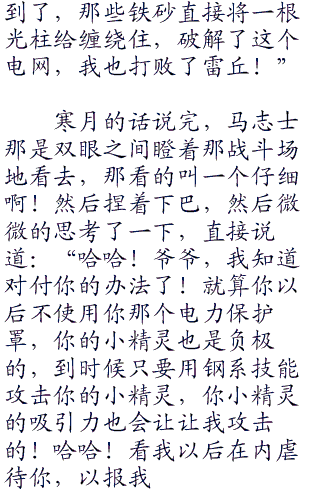 到了，那些铁砂直接将一根
光柱给缠绕住，破解了这个
电网，我也打败了雷丘！”
寒月的话说完，马志士
那是双眼之间瞪着那战斗场
地看去，那看的叫一个仔细
啊！然后捏着下巴，然后微
微的思考了一下，直接说
道：“哈哈！爷爷，我知道
对付你的办法了！就算你以
后不使用你那个电力保护
罩，你的小精灵也是负极
的，到时候只要用钢系技能
攻击你的小精灵，你小精灵
的吸引力也会让让我攻击
的！哈哈！看我以后在内虐
待你，以报我